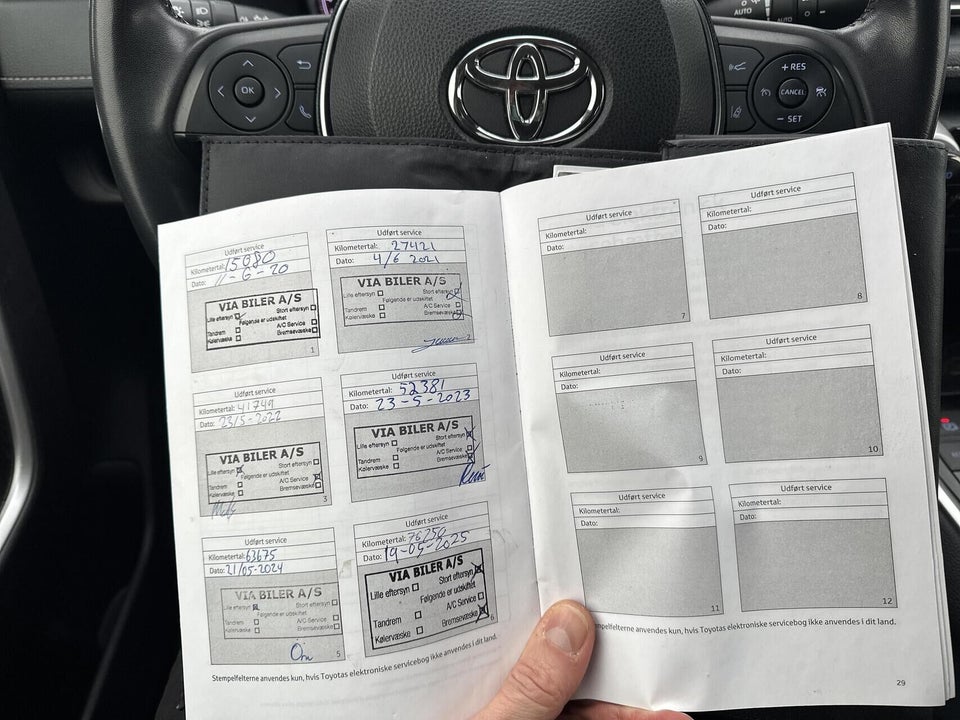 AUTO
AUTO
OK
+ RES
CANCEL
− SET
Udført service
Kilometertal: 15080
Dato: 11-6-20
VIA BILER A/S
Lille eftersyn
Stort eftersyn
Følgende er udskiftet
Tandrem
A/C Service
Kølervæske
Bremsevæske
1
Udført service
Kilometertal: 27421
Dato: 4/6 2021
VIA BILER A/S
Lille eftersyn
Stort eftersyn
Følgende er udskiftet
Tandrem
A/C Service
Kølervæske
Bremsevæske
Udført service
Kilometertal: 41749
Dato: 23/5-2022
VIA BILER A/S
Lille eftersyn
Stort eftersyn
Følgende er udskiftet
Tandrem
A/C Service
Kølervæske
Bremsevæske
3
Udført service
Kilometertal: 52381
Dato: 23-5-2023
VIA BILER A/S
Lille eftersyn
Stort eftersyn
Følgende er udskiftet
Tandrem
A/C Service
Kølervæske
Bremsevæske
Udført service
Kilometertal: 63675
Dato: 21/05-2024
VIA BILER A/S
Lille eftersyn
Stort eftersyn
Følgende er udskiftet
Tandrem
A/C Service
Kølervæske
Bremsevæske
5
Udført service
Kilometertal: 76250
Dato: 19-05-2025
VIA BILER A/S
Lille eftersyn
Stort eftersyn
Følgende er udskiftet
Tandrem
A/C Service
Kølervæske
Bremsevæske
6
Stempelfelterne anvendes kun, hvis Toyotas elektroniske servicebog ikke anvendes i dit land.
Udført service
Kilometertal:
Dato:
7
Udført service
Kilometertal:
Dato:
8
Udført service
Kilometertal:
Dato:
9
Udført service
Kilometertal:
Dato:
10
Udført service
Kilometertal:
Dato:
11
Udført service
Kilometertal:
Dato:
12
mpelfelterne anvendes kun, hvis Toyotas elektroniske servicebog ikke anvendes i dit land.
29